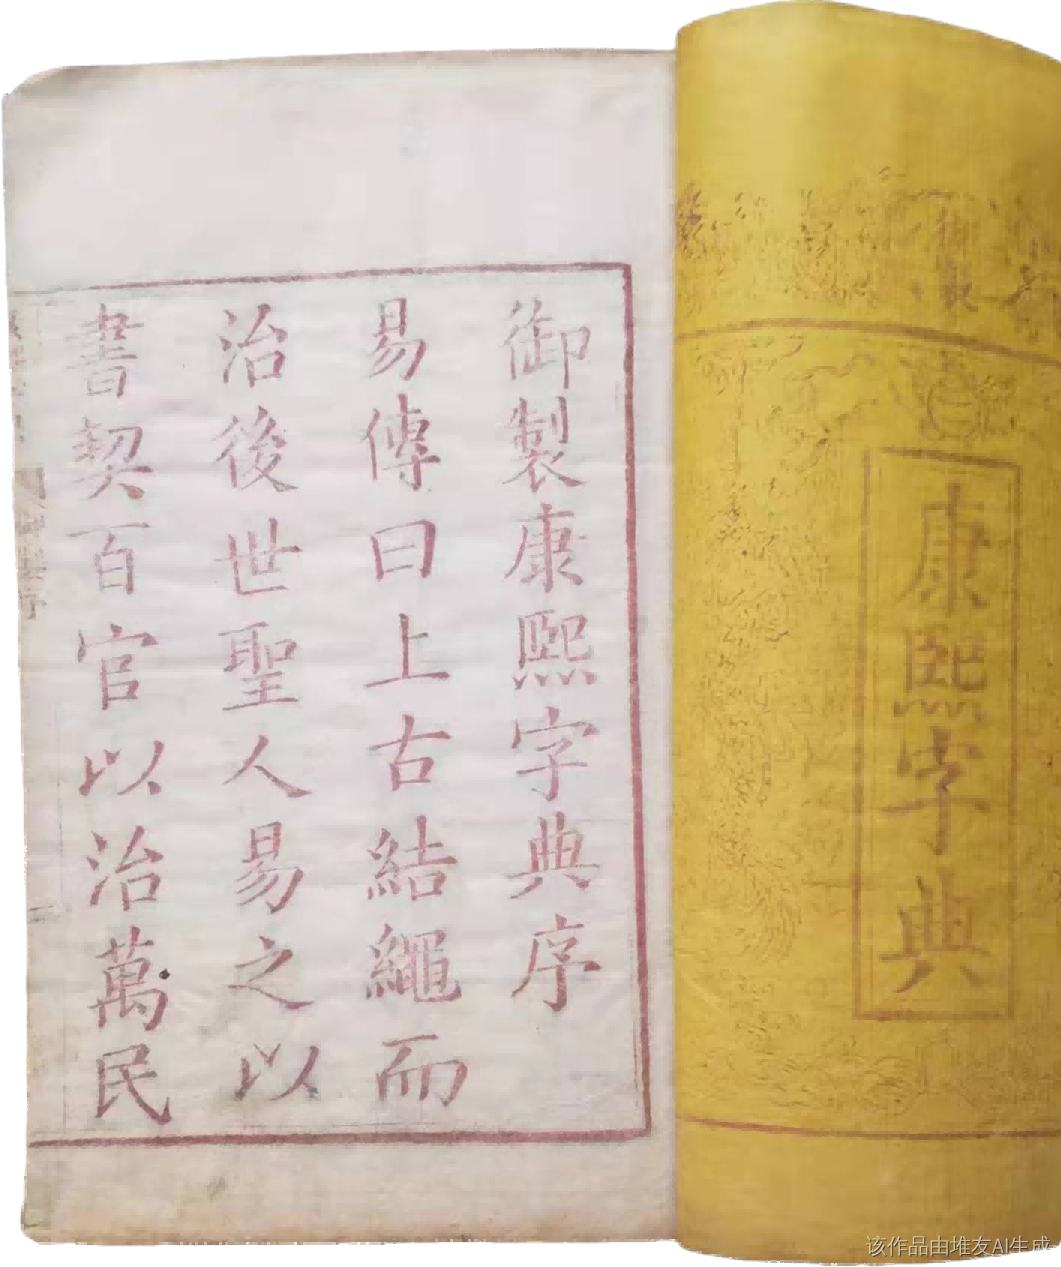 御製
康熙字典
御製康熙字典序
易傳曰上古結繩而
治後世聖人易之以
書契百官以治萬民
该作品由堆友AI生成